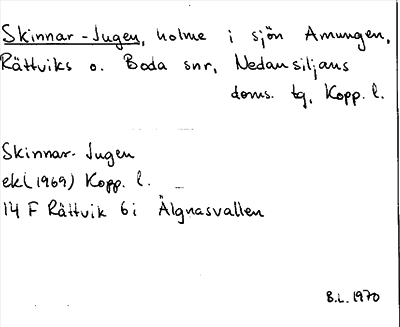 Skinnar-Jugen, holme i sjön Amungen,
Rättviks o. Boda snr, Nedansiljans
doms. tg, Kopp. l.
Skinnar-Jugen
ek (1969) Kopp. l.
14 F Rättvik 6 i Älgnasvallen
B.L. 1970